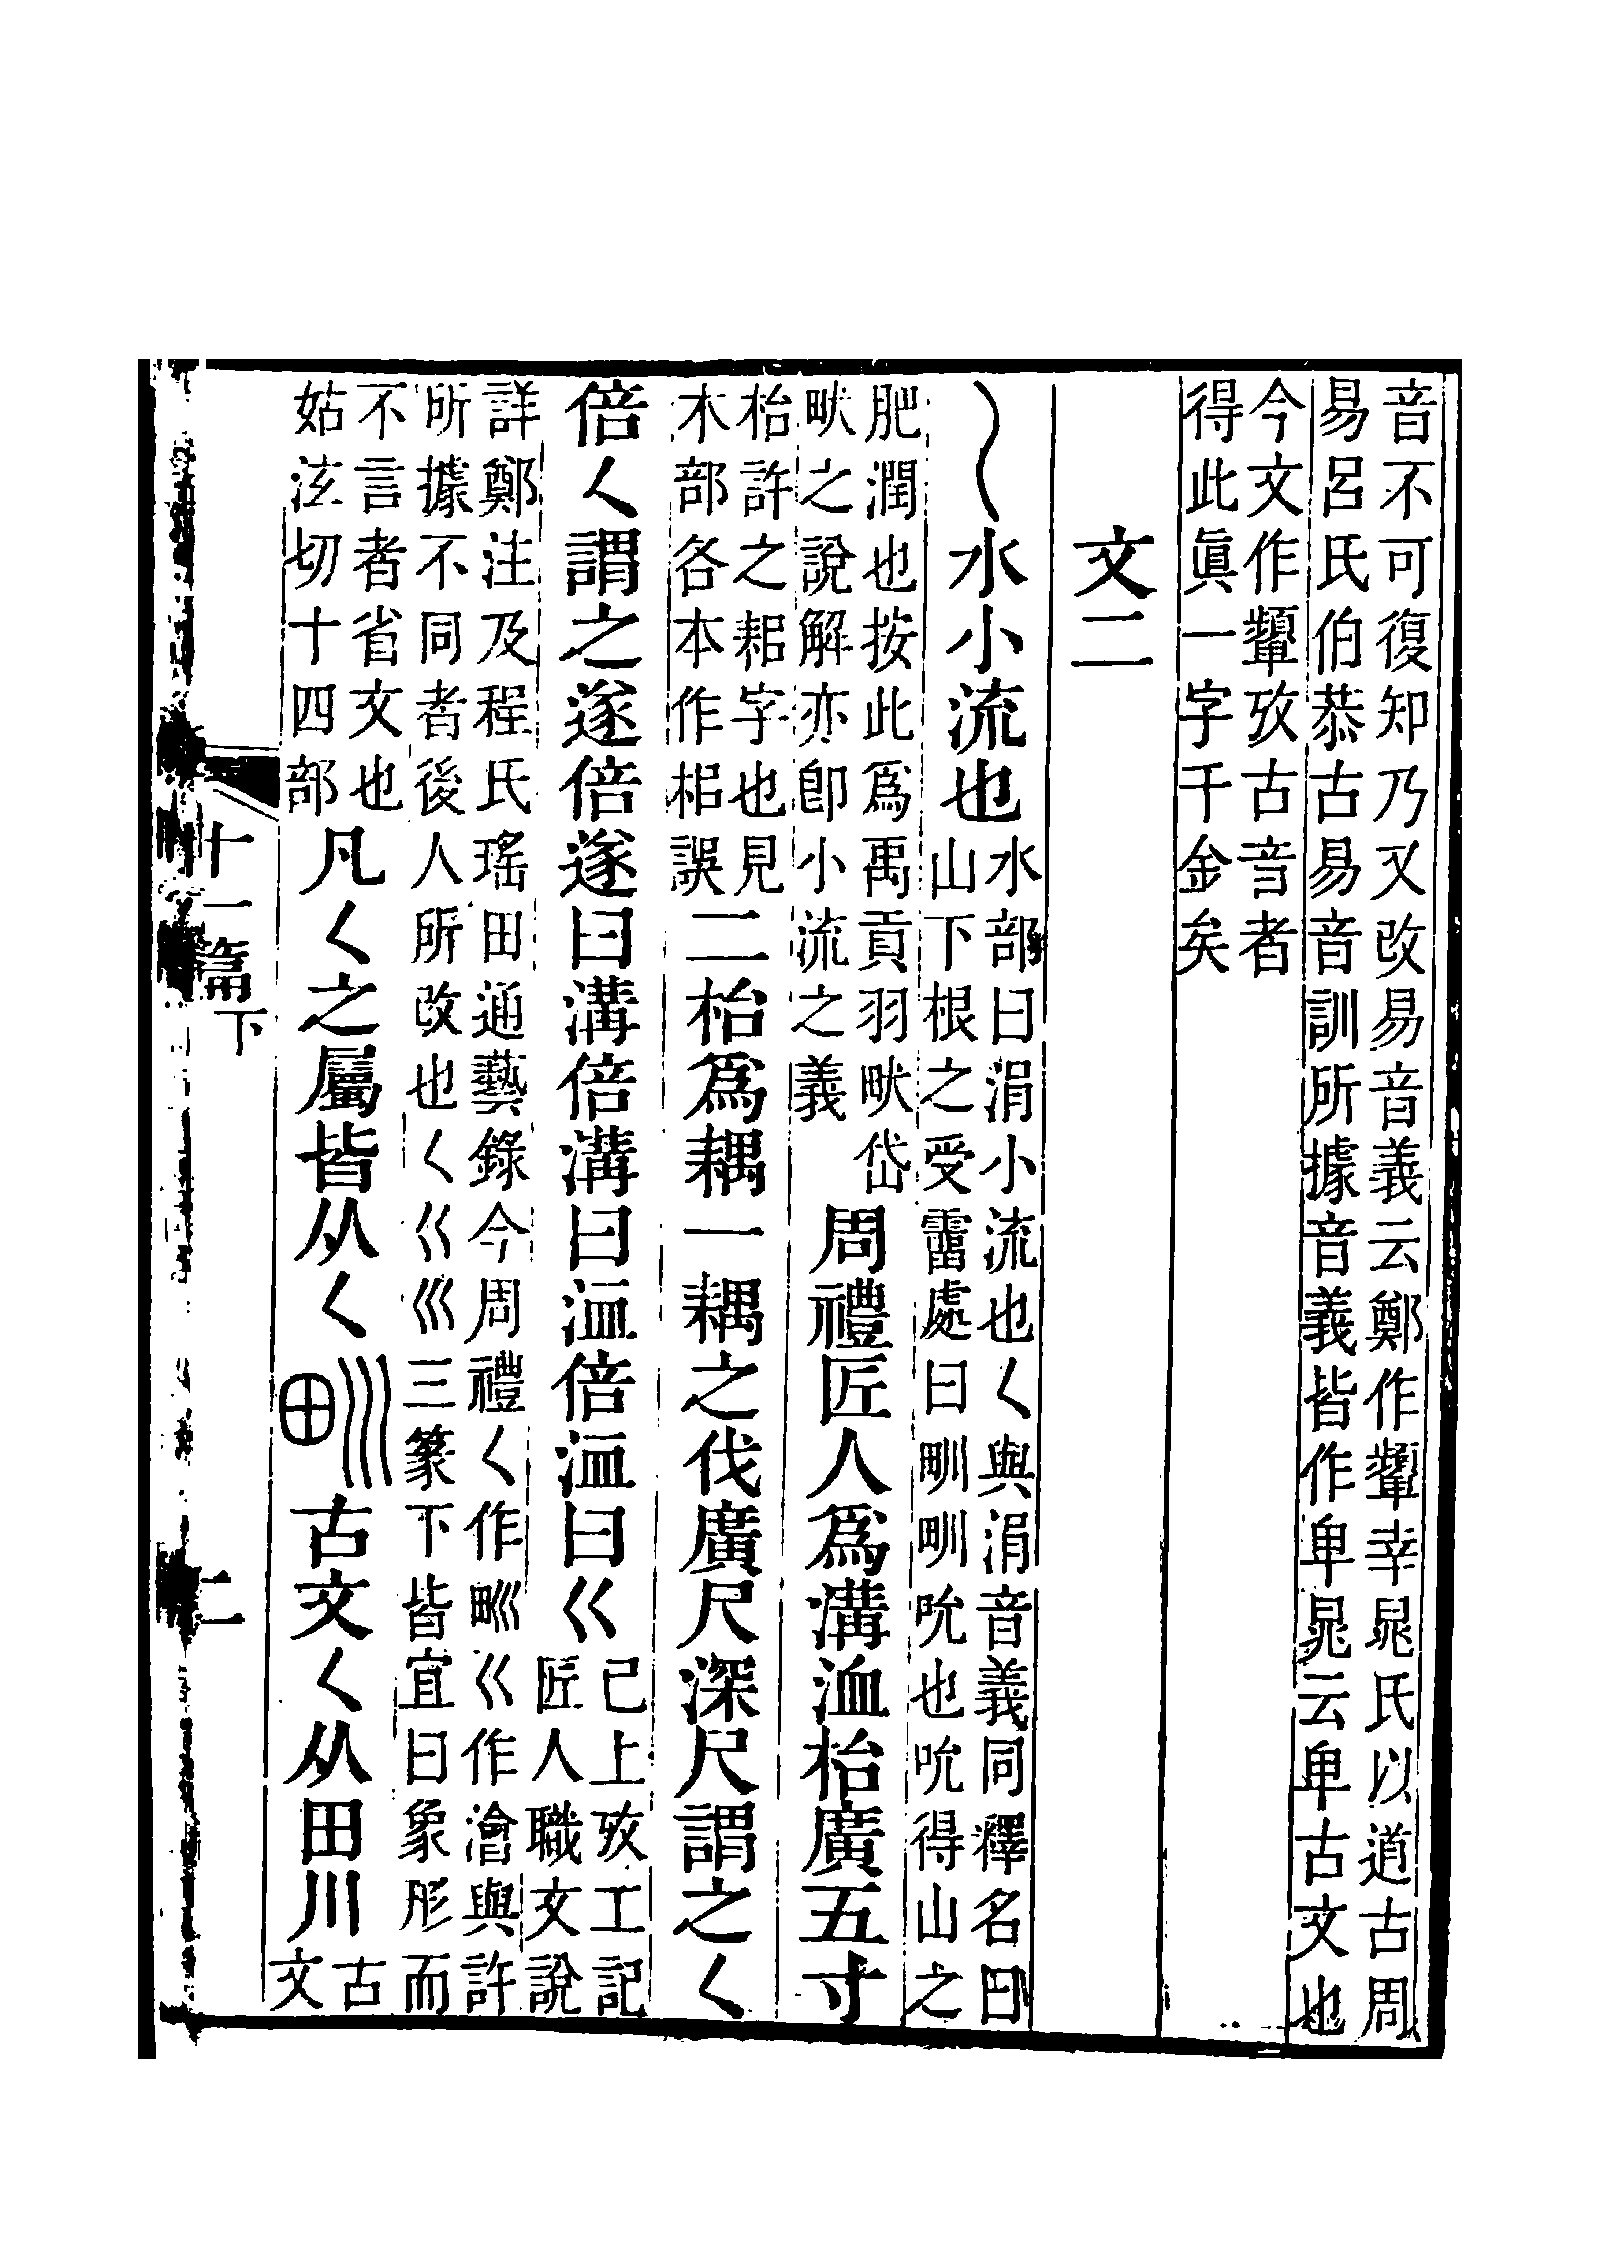 音不可復知乃又改易音義云鄭作顰幸晁氏以道古周
易呂氏伯恭古易音訓所據音義皆作卑晁云卑古文也
今文作顰攷古音者
得此眞一字千金矣
文二
〈水小流也
水部曰涓小流也〈與涓音義同釋名曰
山下根之受霤處曰甽甽吮也吮得山之
肥潤也按此爲禹貢羽畎岱
畎之說解亦卽小流之義
周禮匠人爲溝洫枱廣五寸
枱許之耜字也見
木部各本作耜誤
二枱爲耦一耦之伐廣尺深尺謂之〈
倍〈謂之遂倍遂曰溝倍溝曰洫倍洫曰巜
已上攷工記
匠人職文說
詳鄭注及程氏瑤田通藝錄今周禮〈作甽巜作澮與許
所據不同者後人所改也〈巜巛三篆下皆宜曰象形而
不言者省文也
姑泫切十四部
凡〈之屬皆从〈
甽古文〈从田川
古
文
十一篇下
二